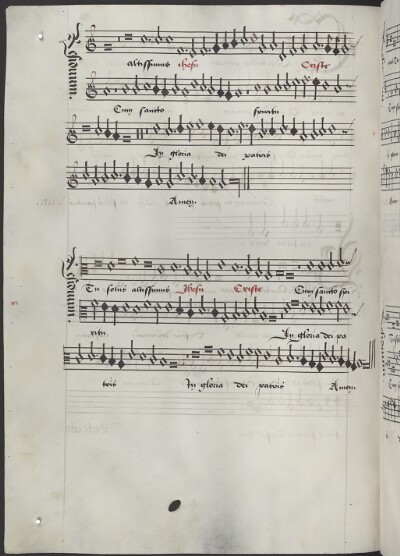 altissimus ihesu Criste
Cum sancto spiritu
In gloria dei patris
Amen.
Tu solus altissimus Jhesu Criste Cum sancto spi
ritu In gloria dei pa
tris In gloria dei patris Amen.